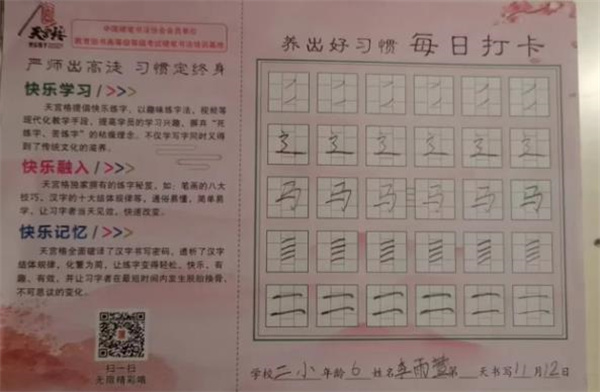 天宫格
中国硬笔书法协会会员单位
教育部书画等级考试硬笔书法培训基地
严师出高徒 习惯定终身
快乐学习/>>>
天宫格提倡快乐练字，以趣味练字法，视频等
现代化教学手段，提高学员的学习兴趣，摒弃“死
练字，苦练字”的枯燥理念。不仅学写字同时又得
到了传统文化的滋养。
快乐融入/>>>
天宫格独家拥有的练字秘笈，如：笔画的八大
技巧，汉字的十大结体规律等，通俗易懂，简单易
学，让习字者当天见效，快速改变。
快乐记忆/>>>
天宫格全面破译了汉字书写密码，遵析了汉字
结体规律，化繁为简，让练字变得轻松、快乐，有
趣、有效，并让习字者在最短时间内发生脱胎换骨，
不可思议的变化。
扫一扫
无限精彩哦
养出好习惯 每日打卡
马 马 马 马 马 马
二 二 二 二 二 二
学校二小年龄6姓名李雨萱第 天书写11月12日